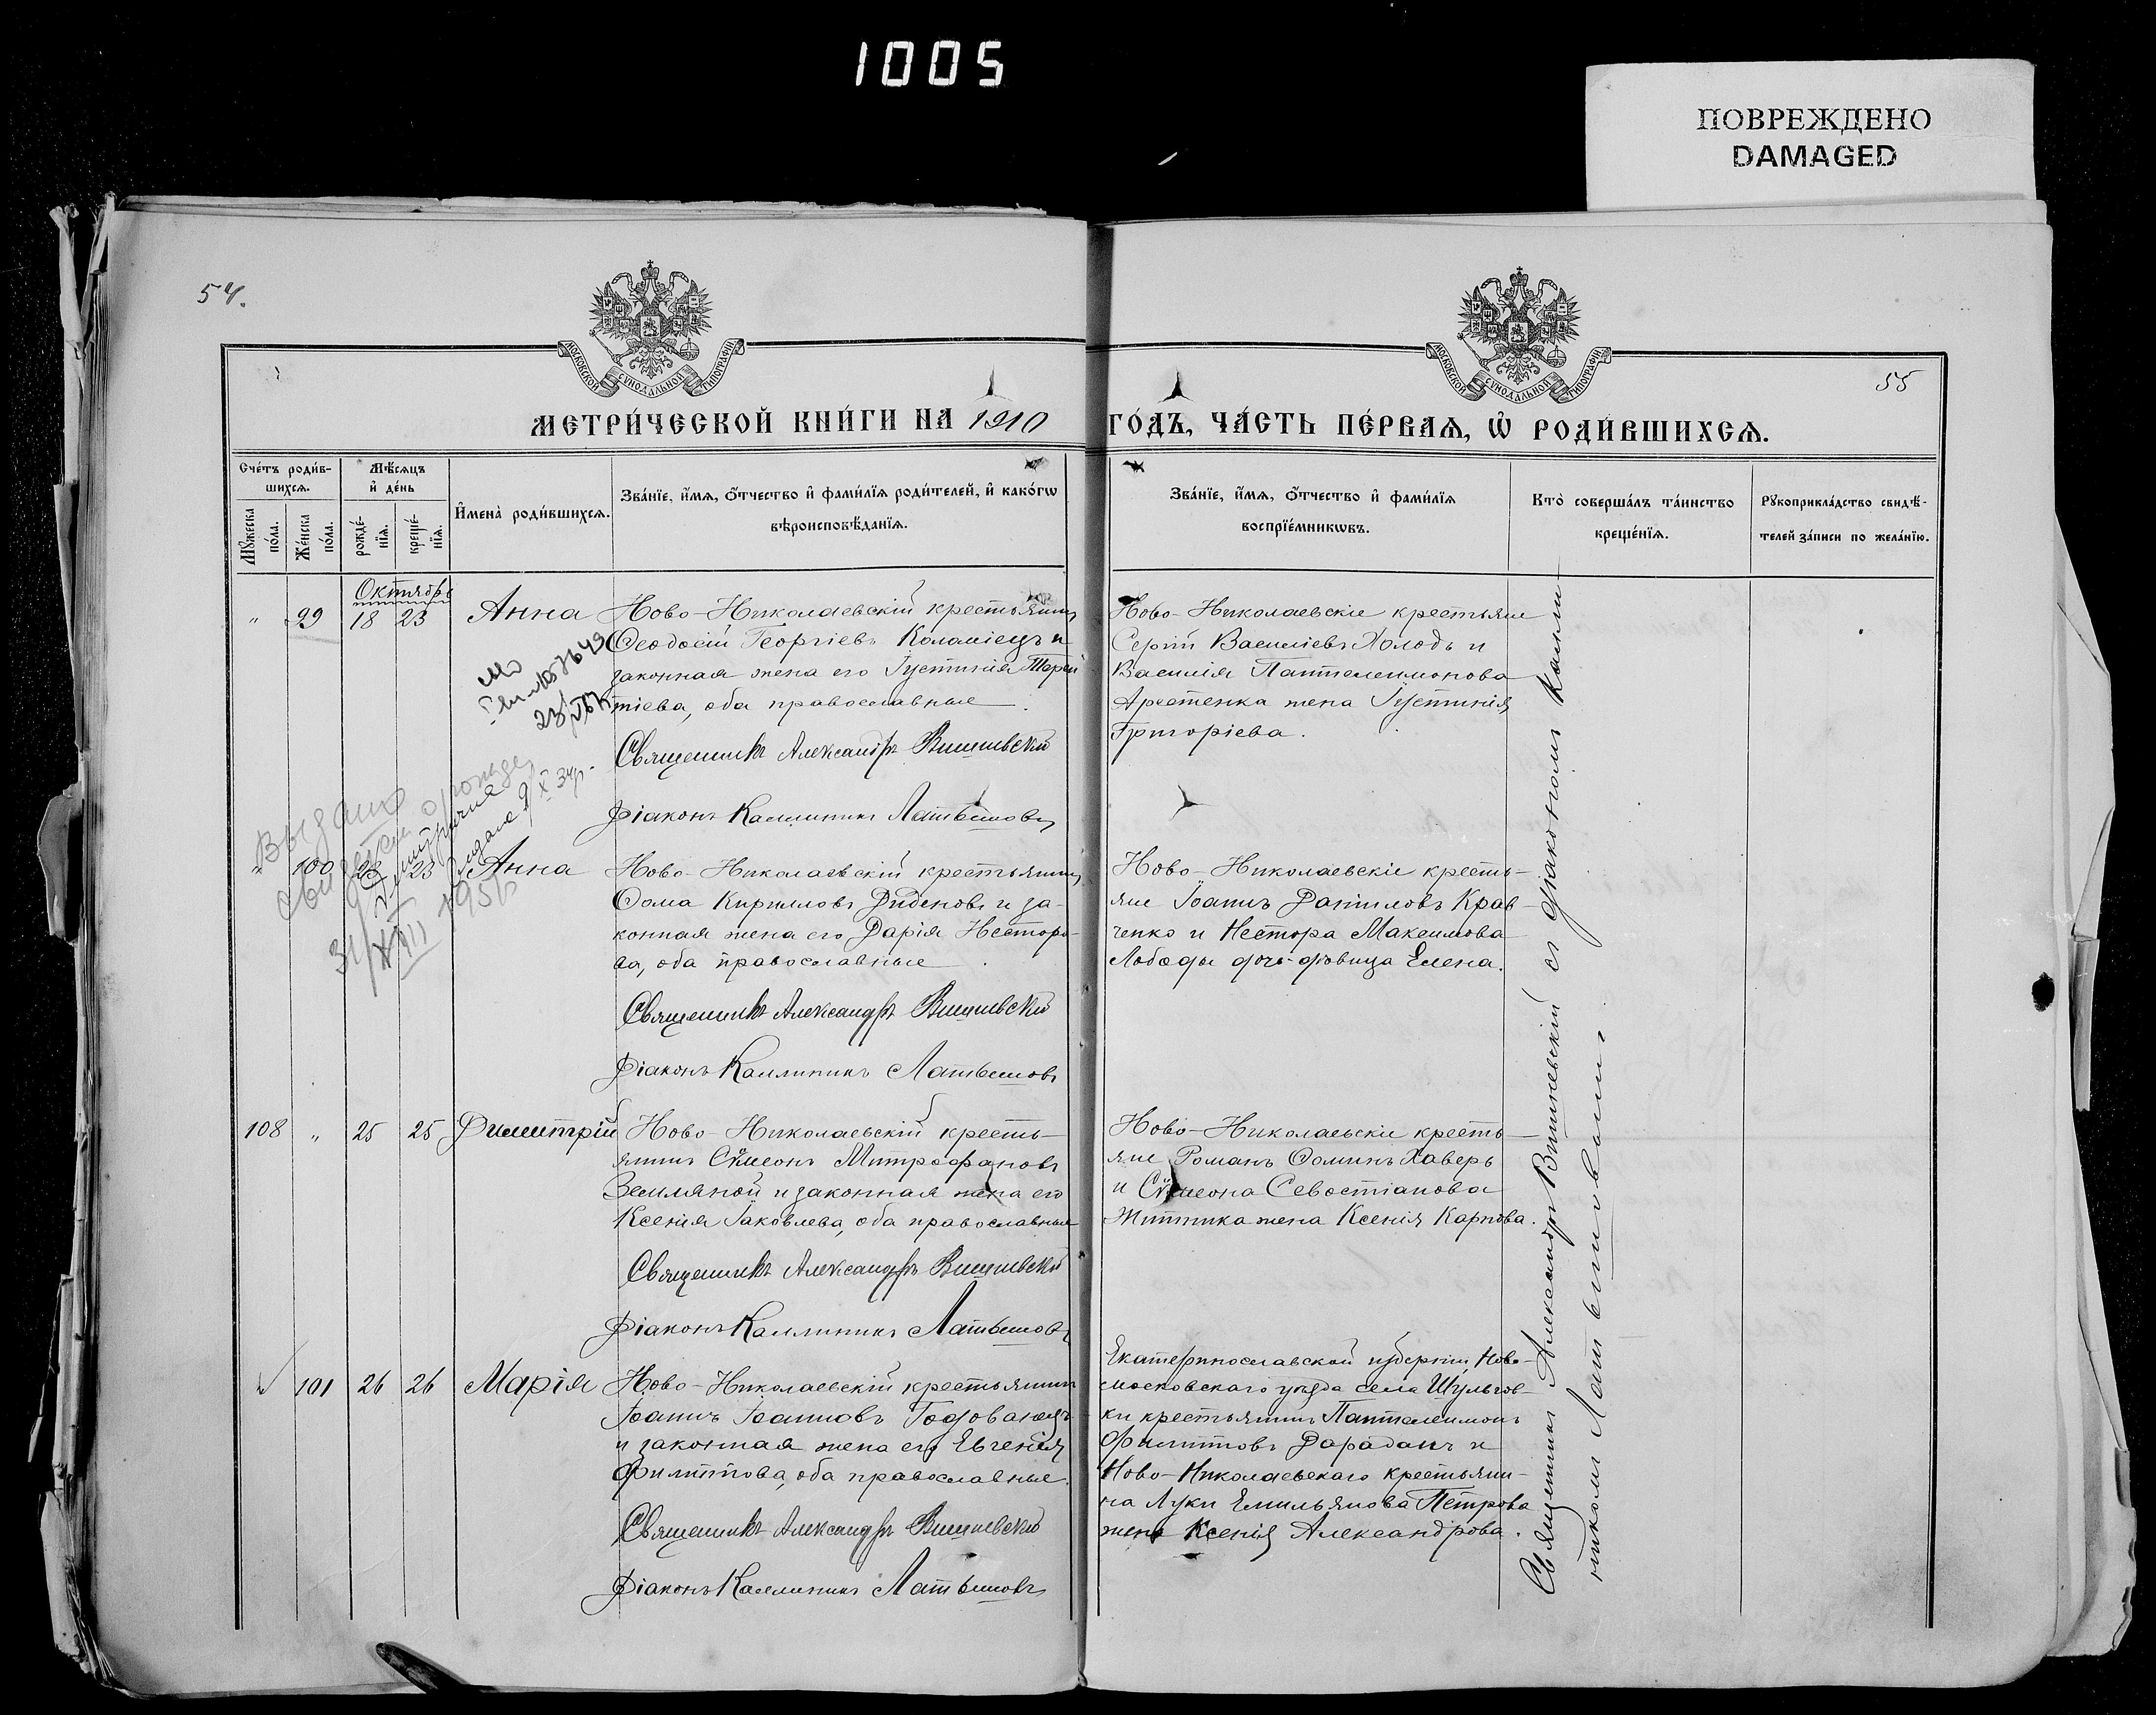 1005
ПОВРЕЖДЕНО
DAMAGED
54.
55
МОСКОВСКОЙ СѴНОДАЛЬНОЙ ТИПОГРАФІИ
МОСКОВСКОЙ СѴНОДАЛЬНОЙ ТИПОГРАФІИ
МЕТРИ́ЧЕСКОЙ КНИ́ГИ НА 1910
ГО́ДЪ, ЧА́СТЬ ПЕ́РВАЯ, Ѡ҆ РОДИ́ВШИХСЯ.
Сче́тъ роди́в-
шихся.
Мѣ́сяцъ
и҆ де́нь
Мꙋ́жеска
по́ла.
Же́нска
по́ла.
рожде́-
нїя.
креще́-
нїя.
И҆мена̀ роди́вшихся.
Зва́нїе, и҆́мя, ѻ҆́тчество и҆ фами́лїя роди́телей, и҆ како́гѡ
вѣроисповѣ́данїя.
Зва́нїе, и҆́мя, ѻ҆́тчество и҆ фами́лїя
воспрїе́мникѡвъ.
Кто̀ соверша́лъ та́инство
креще́нїя.
Рꙋкоприкла́дство свидѣ́-
телей за́писи по жела́нїю.
Октябрь
" 99 18 23 Анна
Ново-Николаевскій крестьянинъ
Ѳеодосій Георгіевъ Коломіецъ и
законная жена его Іустинія Терен
тіева, оба православные.
Священникъ Александръ Вишневскій
Діаконъ Каллиникъ Латышовъ
Ново-Николаевскіе крестьяне
Сергій Василіевъ Холодъ и
Василія Пантелеимонова
Арестенка жена Іустинія
Григоріева.
Выдано
" 100 23 23 Анна
Ново-Николаевскій крестьянинъ
Ѳома Кирилловъ Диденовъ и за-
конная жена его Дарія Несторо-
ва, оба православные.
Священникъ Александръ Вишневскій
Діаконъ Каллиникъ Латышовъ
Ново-Николаевскіе кресть-
яне Іоаннъ Даніиловъ Крав-
ченко и Нестора Максимова
Лободы дочь-дѣвица Елена.
108 " 25 25 Димитрій
Ново-Николаевскій кресть-
янинъ Сѵмеонъ Митрофановъ
Земляной и законная жена его
Ксенія Іаковлева, оба православные
Священникъ Александръ Вишневскій
Діаконъ Каллиникъ Латышовъ
Ново-Николаевскіе кресть-
яне Романъ Ѳоминъ Хаверь
и Сѵмеона Севостіанова
Житника жена Ксенія Карпова.
101 26 26 Марія
Ново-Николаевскій крестьянинъ
Іоаннъ Іоанновъ Годованецъ
и законная жена его Евгенія
Филиппова, оба православные.
Священникъ Александръ Вишневскій
Діаконъ Каллиникъ Латышовъ
Екатеринославской губерніи, Ново-
московскаго уѣзда села Шульгов-
ки крестьянинъ Пантелеимонъ
Филипповъ Дараданъ и
Ново-Николаевскаго крестьяни-
на Луки Емильянова Петрова
жена Ксенія Александрова.
Священникъ Александръ Вишневскій съ діакономъ Калли-
никомъ Латышовымъ.